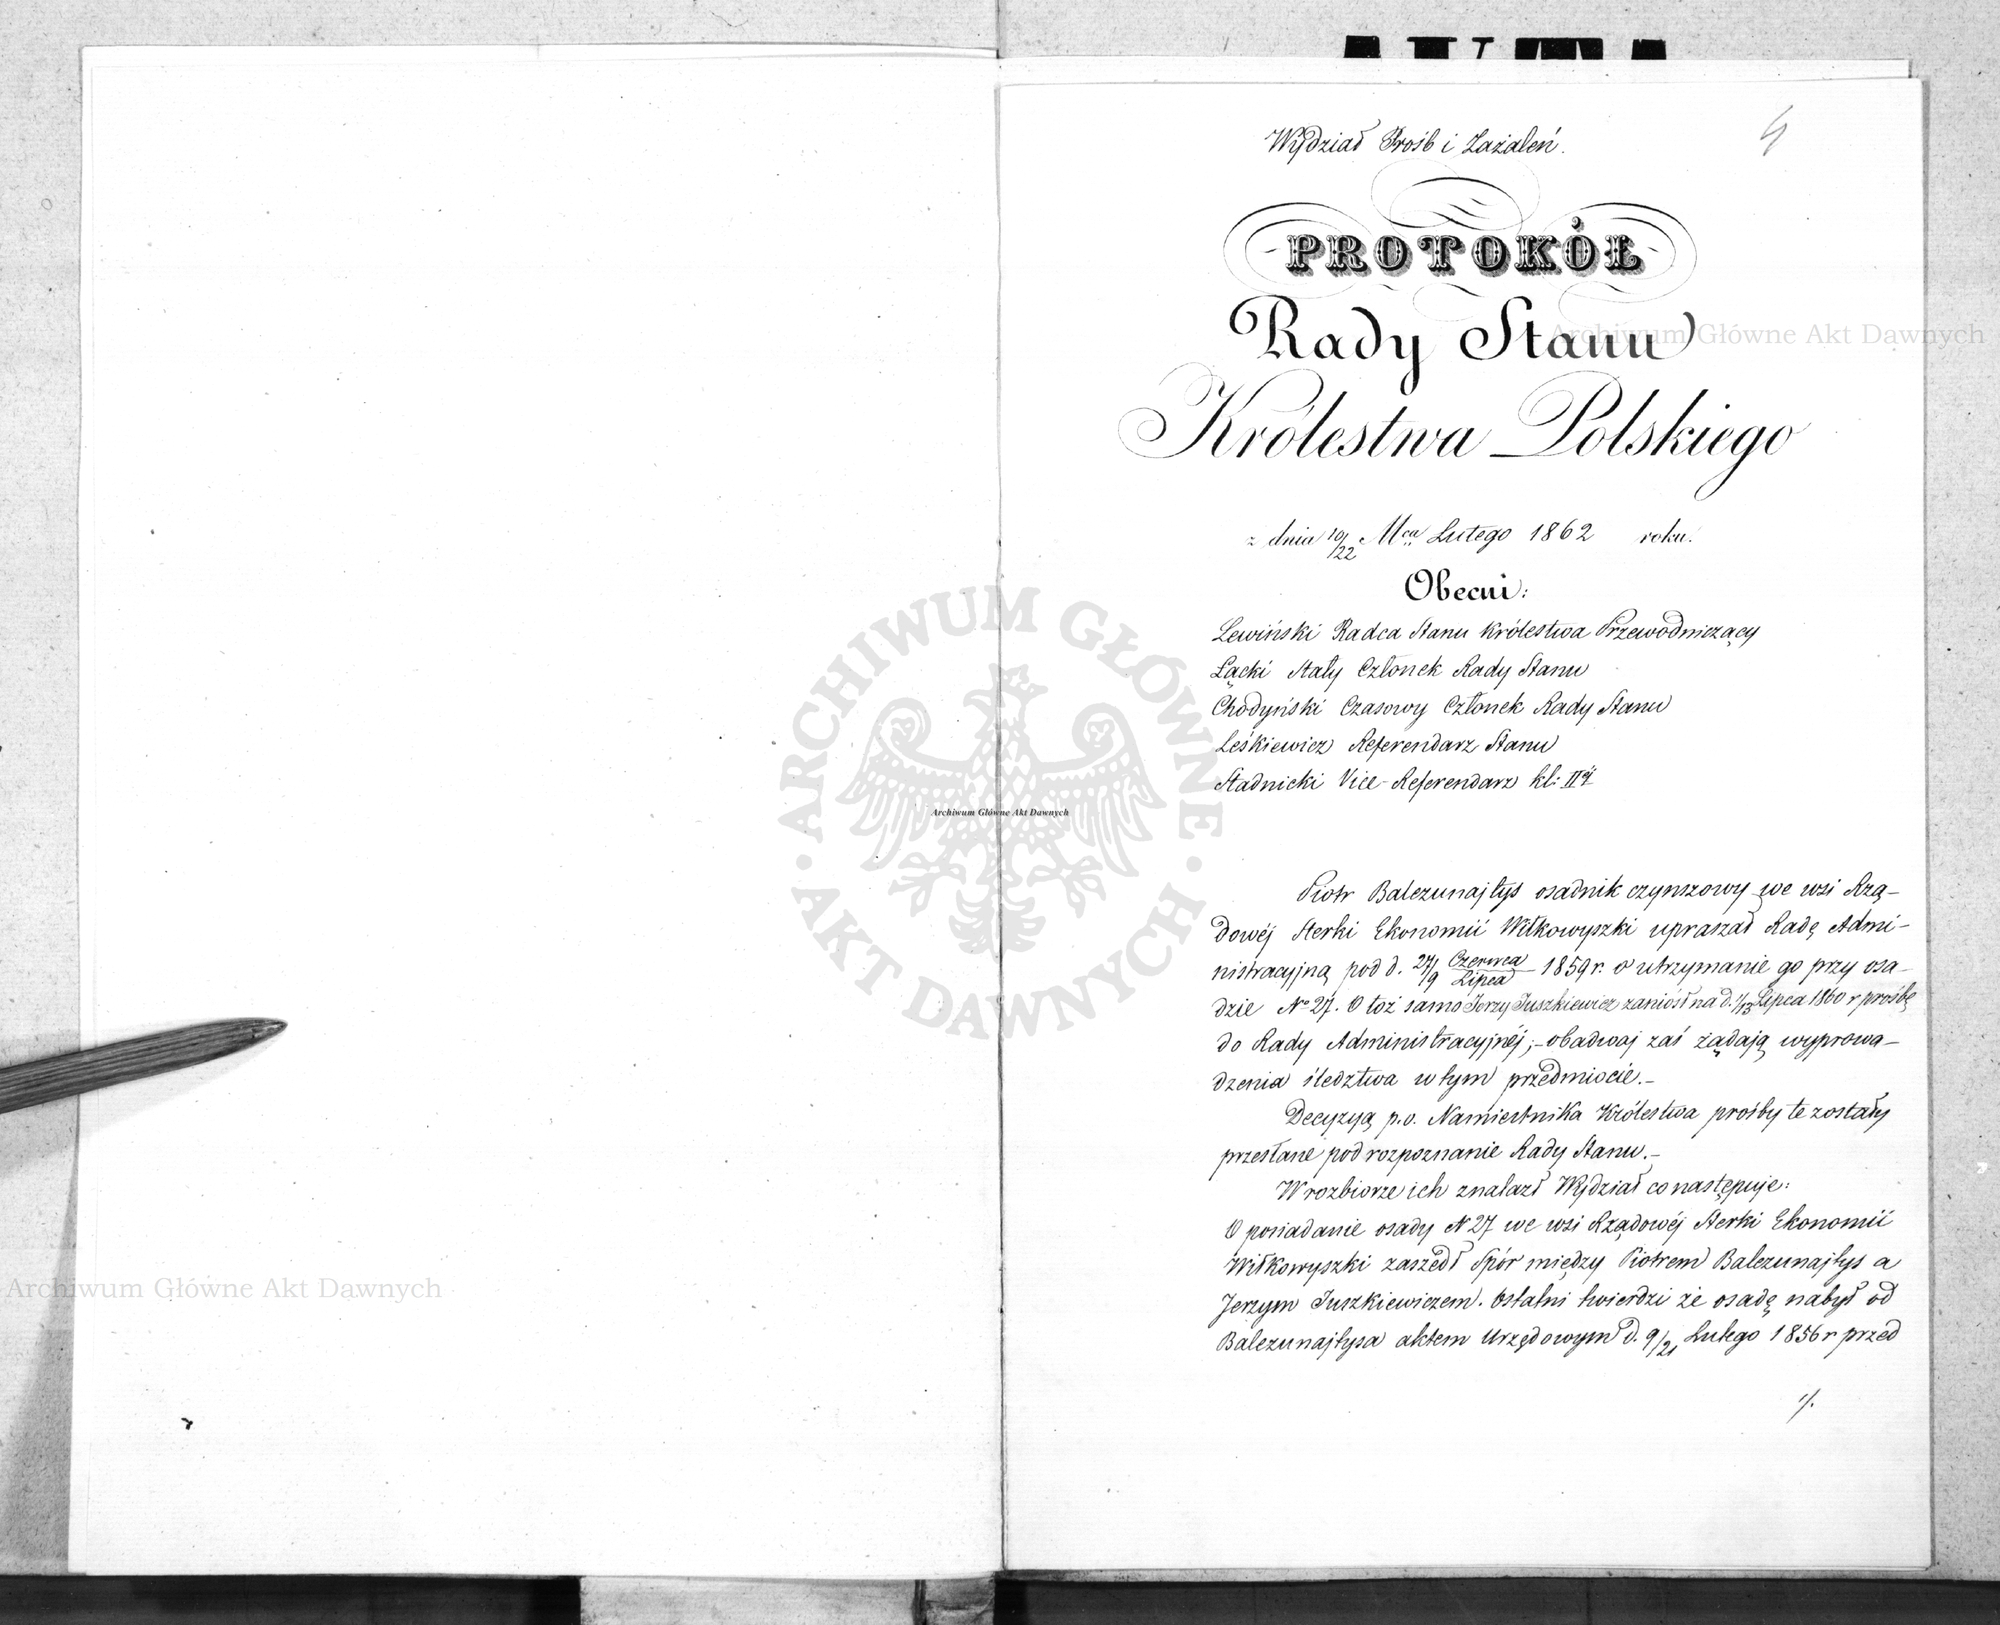 Wydział Prośb i Zażaleń.
4
PROTOKÓŁ
Rady Stanu
Królestwa Polskiego
z dnia 10/22 Mca Lutego 1862 roku.
Obecni:
Lewiński Radca Stanu Królestwa Przewodniczący
Łącki Stały Członek Rady Stanu
Chodyński Czasowy Członek Rady Stanu
Leśkiewicz Referendarz Stanu
Stadnicki Vice-Referendarz kl: IIéj
Piotr Balczunajtys osadnik czynszowy we wsi Rzą-
dowéj Sterki Ekonomii Wiłkowyszki upraszał Radę Admi-
nistracyjną pod d. 27/9 Czerwca/Lipca 1859 r. o utrzymanie go przy osa-
dzie No 27. O toż samo Jerzy Juszkiewicz zaniósł na d. 1/13 Lipca 1860 r prośbę
do Rady Administracyjnéj;- obadwaj zaś żądają wyprowa-
dzenia śledztwa w tym przedmiocie.-
Decyzyą p.o. Namiestnika Królestwa prośby te zostały
przesłane pod rozpoznanie Rady Stanu.-
W rozbiorze ich znalazł Wydział co następuje:
O posiadanie osady N 27 we wsi Rządowéj Sterki Ekonomii
Wiłkowyszki zaszedł Spór między Piotrem Balczunajtys a
Jerzym Juszkiewiczem. Ostatni twierdzi że osadę nabył od
Balczunajtysa aktem Urzędowym d. 9/21 Lutego 1856 r przed
./.
Archiwum Główne Akt Dawnych
Archiwum Główne Akt Dawnych
Archiwum Główne Akt Dawnych
ARCHIWUM GŁÓWNE
AKT DAWNYCH